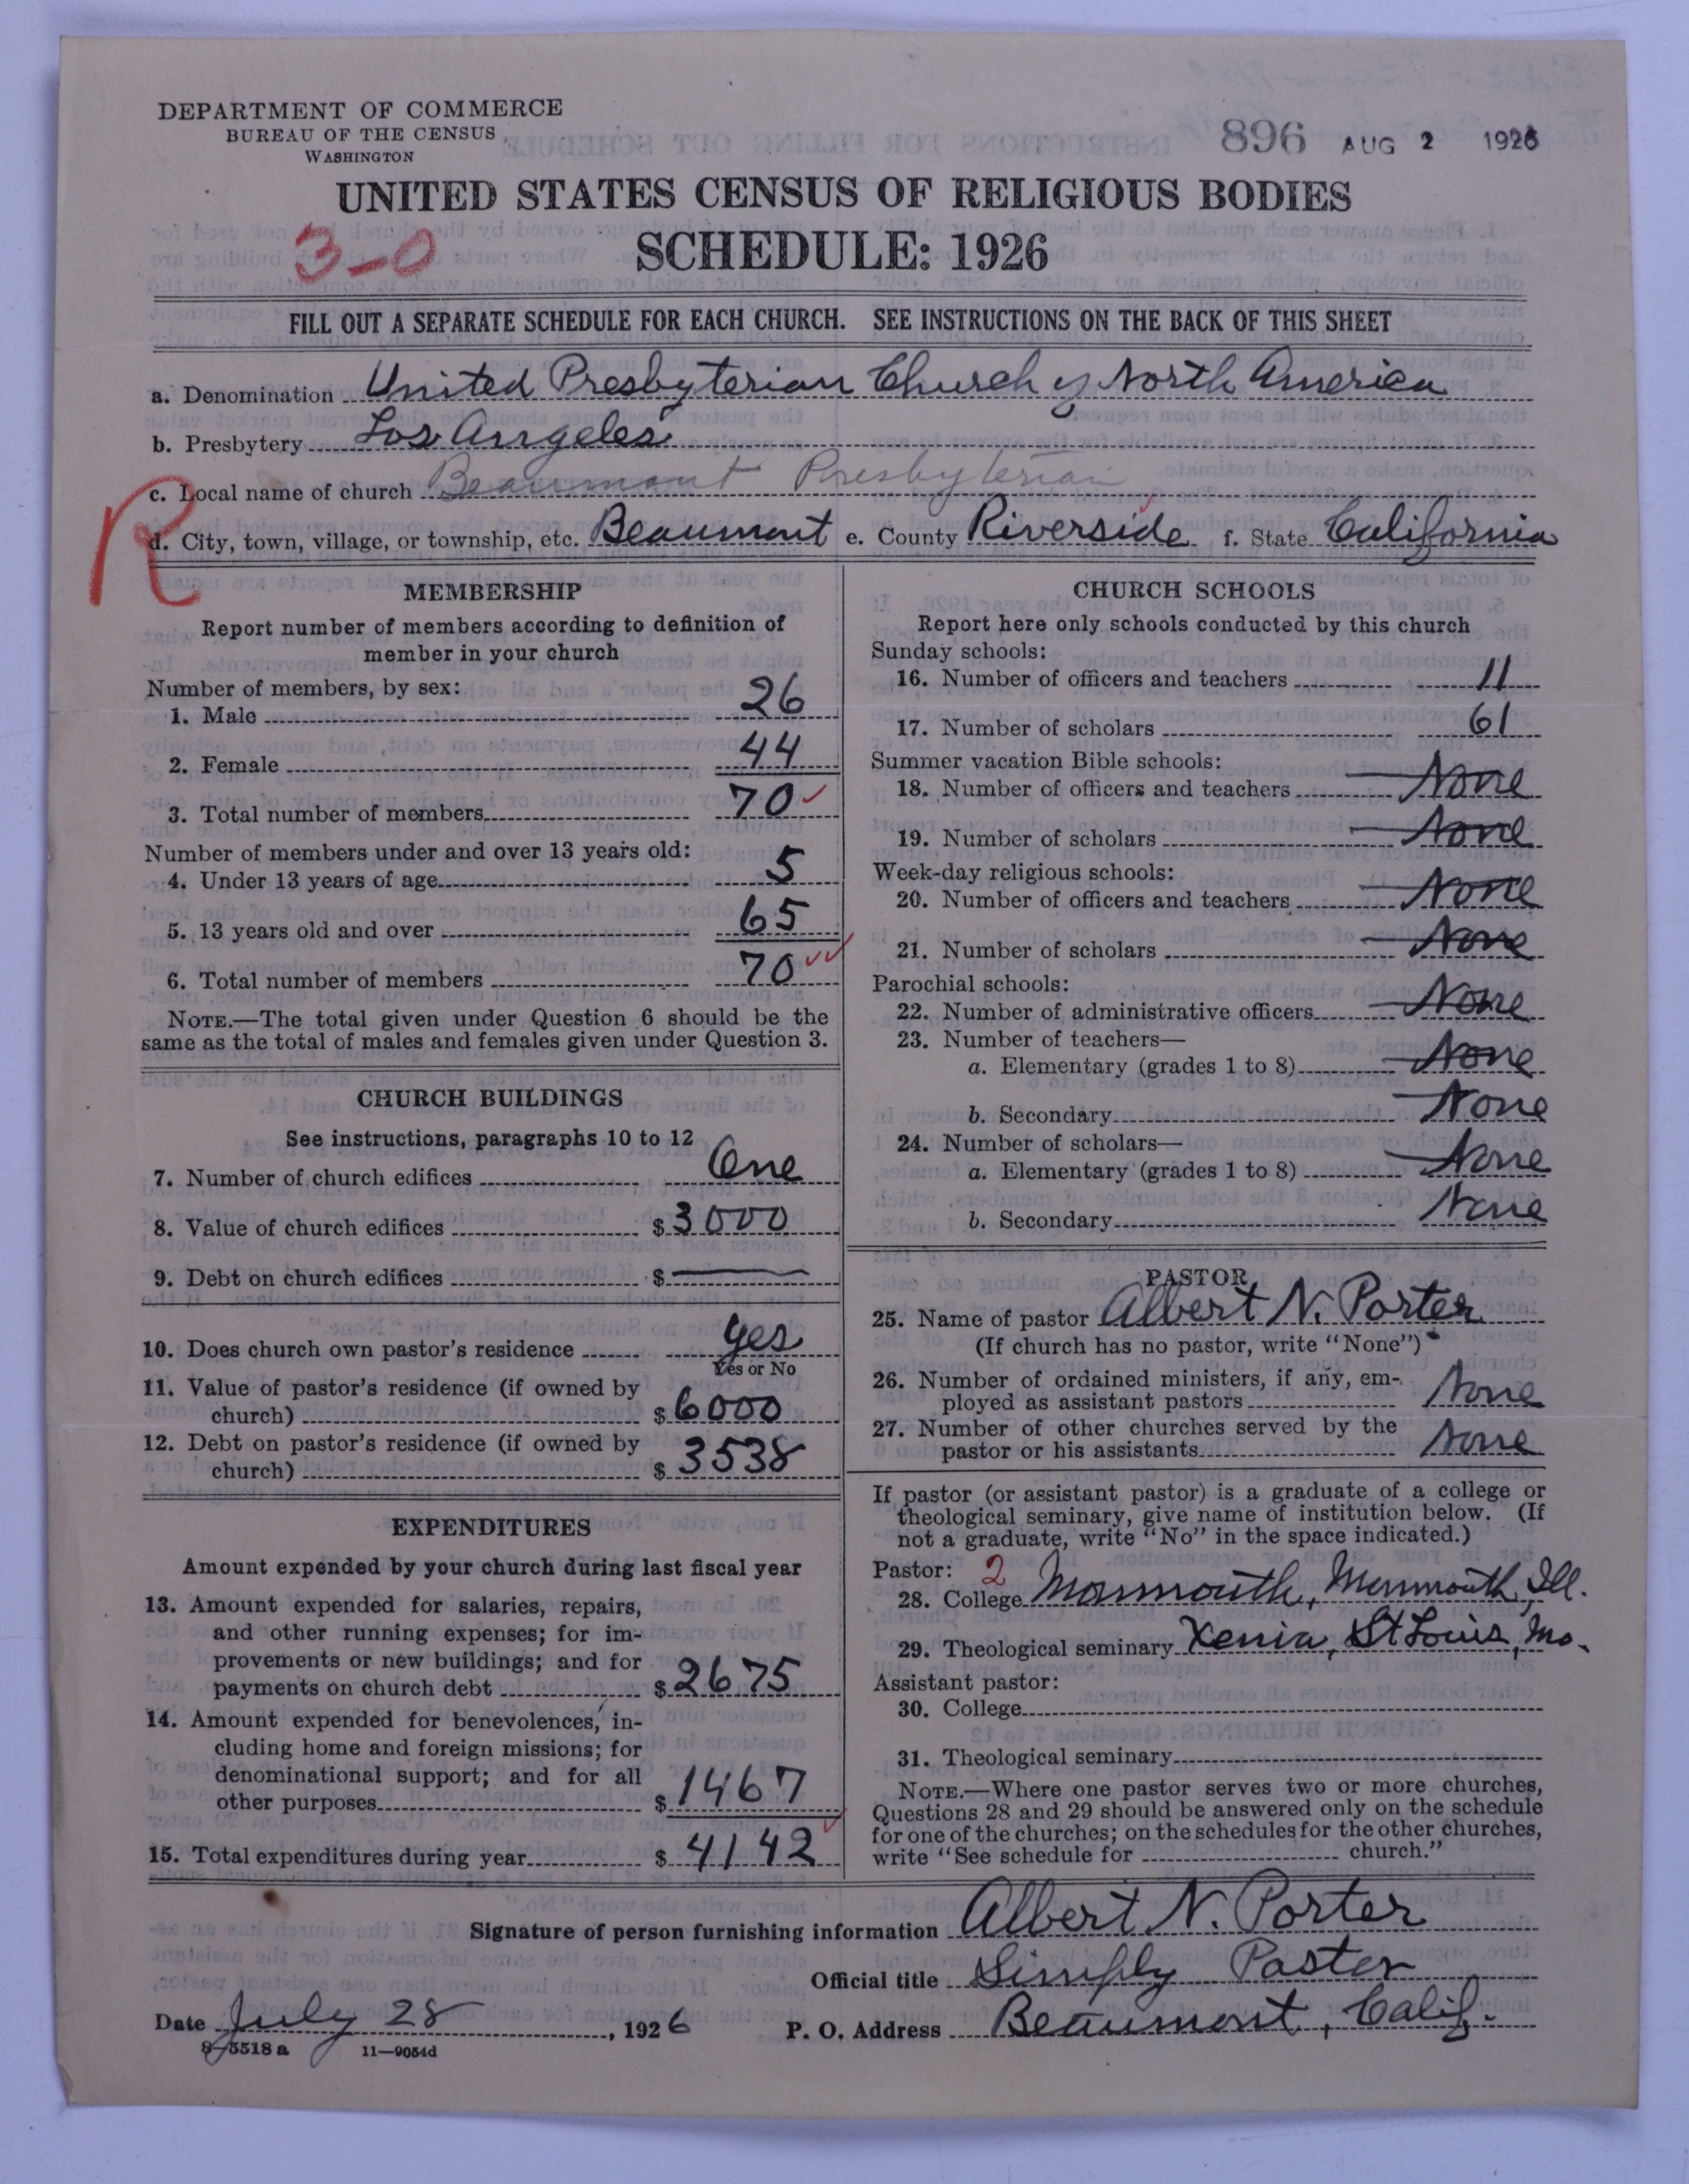 DEPARTMENT OF COMMERCE
BUREAU OF THE CENSUS
WASHINGTON
896 AUG 2 1926
UNITED STATES CENSUS OF RELIGIOUS BODIES
3-0
SCHEDULE: 1926
FILL OUT A SEPARATE SCHEDULE FOR EACH CHURCH. SEE INSTRUCTIONS ON THE BACK OF THIS SHEET
a. Denomination United Presbyterian Church of North America
b. Presbytery Los Angeles
c. Local name of church Beaumont Presbyterian
R
d. City, town, village, or township, etc. Beaumont e. County Riverside f. State California
MEMBERSHIP
Report number of members according to definition of
member in your church
Number of members, by sex:
1. Male 26
2. Female 44
3. Total number of members 70
Number of members under and over 13 years old:
4. Under 13 years of age 5
5. 13 years old and over 65
6. Total number of members 70
NOTE.—The total given under Question 6 should be the
same as the total of males and females given under Question 3.
CHURCH BUILDINGS
See instructions, paragraphs 10 to 12
7. Number of church edifices One
8. Value of church edifices $3000
9. Debt on church edifices $ —
10. Does church own pastor's residence yes
Yes or No
11. Value of pastor's residence (if owned by
church) $6000
12. Debt on pastor's residence (if owned by
church) $3538
EXPENDITURES
Amount expended by your church during last fiscal year
13. Amount expended for salaries, repairs,
and other running expenses; for im-
provements or new buildings; and for
payments on church debt $2675
14. Amount expended for benevolences, in-
cluding home and foreign missions; for
denominational support; and for all
other purposes $1467
15. Total expenditures during year $4142
CHURCH SCHOOLS
Report here only schools conducted by this church
Sunday schools:
16. Number of officers and teachers 11
17. Number of scholars 61
Summer vacation Bible schools:
18. Number of officers and teachers None
19. Number of scholars None
Week-day religious schools:
20. Number of officers and teachers None
21. Number of scholars None
Parochial schools:
22. Number of administrative officers None
23. Number of teachers—
a. Elementary (grades 1 to 8) None
b. Secondary None
24. Number of scholars—
a. Elementary (grades 1 to 8) None
b. Secondary None
PASTOR
25. Name of pastor Albert N. Porter
(If church has no pastor, write "None")
26. Number of ordained ministers, if any, em-
ployed as assistant pastors None
27. Number of other churches served by the
pastor or his assistants None
If pastor (or assistant pastor) is a graduate of a college or
theological seminary, give name of institution below. (If
not a graduate, write "No" in the space indicated.)
Pastor: 2
28. College Monmouth, Monmouth, Ill.
29. Theological seminary Xenia, St Louis, Mo.
Assistant pastor:
30. College
31. Theological seminary
NOTE.—Where one pastor serves two or more churches,
Questions 28 and 29 should be answered only on the schedule
for one of the churches; on the schedules for the other churches,
write "See schedule for church."
Signature of person furnishing information Albert N. Porter
Official title Simply Pastor
Date July 28, 1926 P. O. Address Beaumont, Calif.
8-5518a 11-9054d